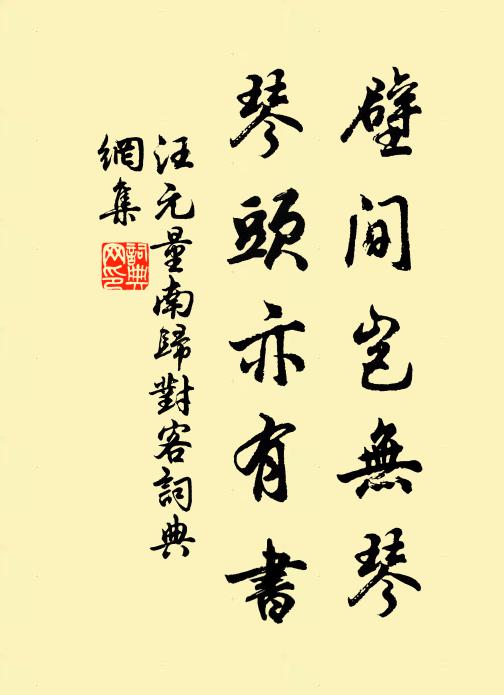 壁間豈無琴
琴頭亦有書
汪元量南歸對客詞典
網集
詞典
网印